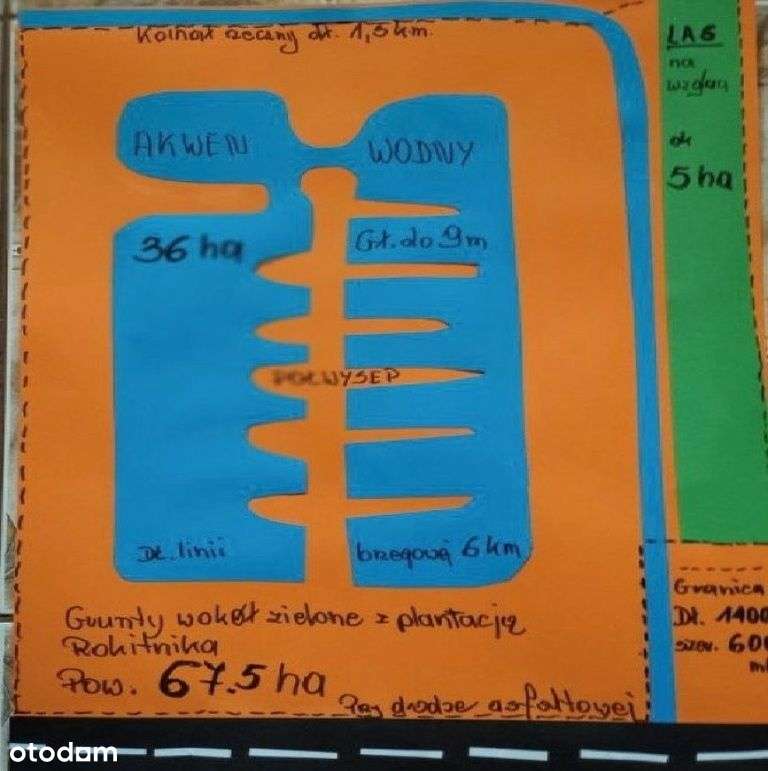 Kolnat rzeczny dł. 1,5 km.
LAS
na
ok
5 ha
AKWEN WODNY
36 ha
Gł. do 9m
PÓŁWYSEP
Dł. linii brzegowej 6 km
Grunty wokół zielone z plantacją
Rokitnika
Pow. 67.5 ha
Przy drodze asfaltowej
Granica
Dł. 1100
szer. 600
otodom